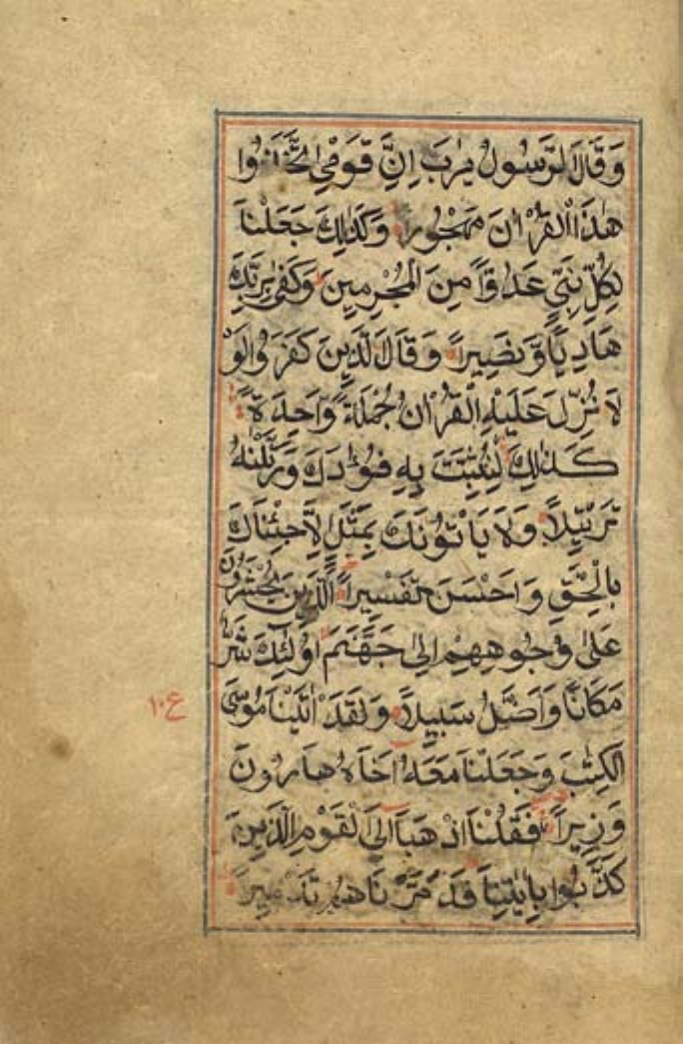 وَقَالَ الرَّسُولُ يٰرَبِّ اِنَّ قَوْمِي اتَّخَذُوا
هٰذَا الْقُرْاٰنَ مَهْجُورًا وَكَذٰلِكَ جَعَلْنَا
لِكُلِّ نَبِيٍّ عَدُوًّا مِنَ الْمُجْرِمِينَ وَكَفٰى بِرَبِّكَ
هَادِيًا وَّنَصِيرًا وَقَالَ الَّذِينَ كَفَرُوا لَوْ
لَا نُزِّلَ عَلَيْهِ الْقُرْاٰنُ جُمْلَةً وَّاحِدَةً
كَذٰلِكَ لِنُثَبِّتَ بِهِ فُؤَادَكَ وَرَتَّلْنٰهُ
تَرْتِيلًا وَلَا يَاْتُونَكَ بِمَثَلٍ اِلَّا جِئْنَاكَ
بِالْحَقِّ وَاَحْسَنَ تَفْسِيرًا الَّذِينَ يُحْشَرُونَ
عَلٰى وُجُوهِهِمْ اِلٰى جَهَنَّمَ اُولٰئِكَ شَرٌّ
مَكَانًا وَاَضَلُّ سَبِيلًا وَلَقَدْ اٰتَيْنَا مُوسَى
الْكِتٰبَ وَجَعَلْنَا مَعَهُ اَخَاهُ هَارُونَ
وَزِيرًا فَقُلْنَا اذْهَبَا اِلَى الْقَوْمِ الَّذِينَ
كَذَّبُوا بِاٰيٰتِنَا فَدَمَّرْنَاهُمْ تَدْمِيرًا
ع ١٠